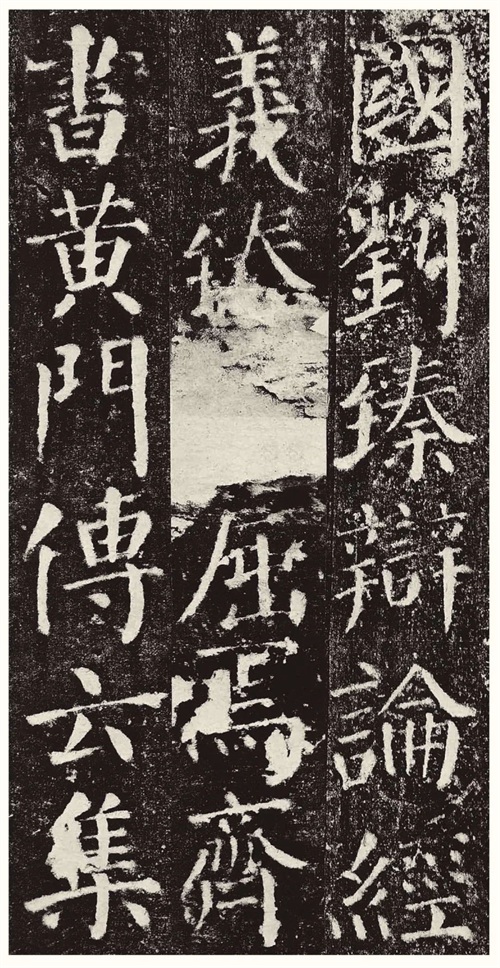 國劉臻辯論經
義臻屈焉齊
書黄門傳云集